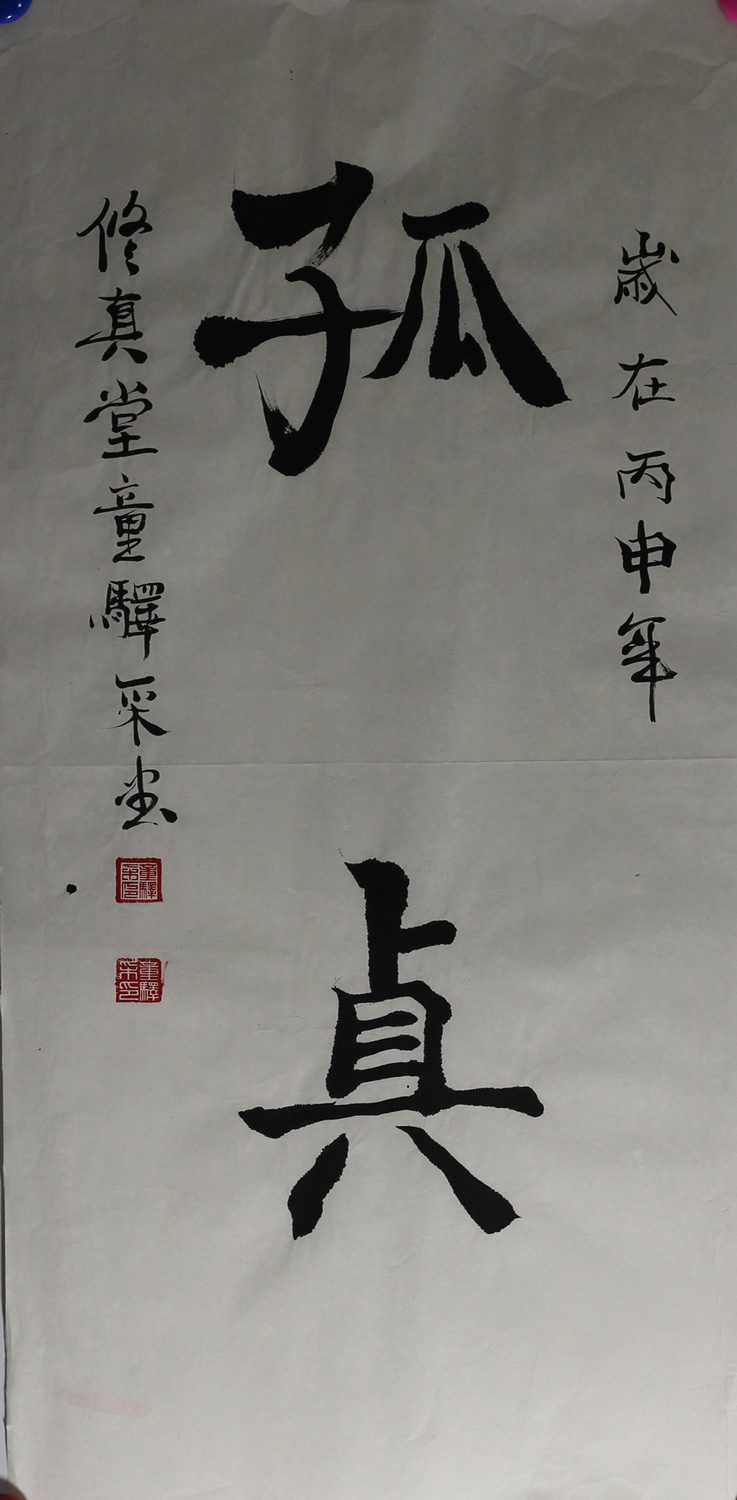 歲在丙申年
孤真
修真堂童驛采書
童驛
童驛采印